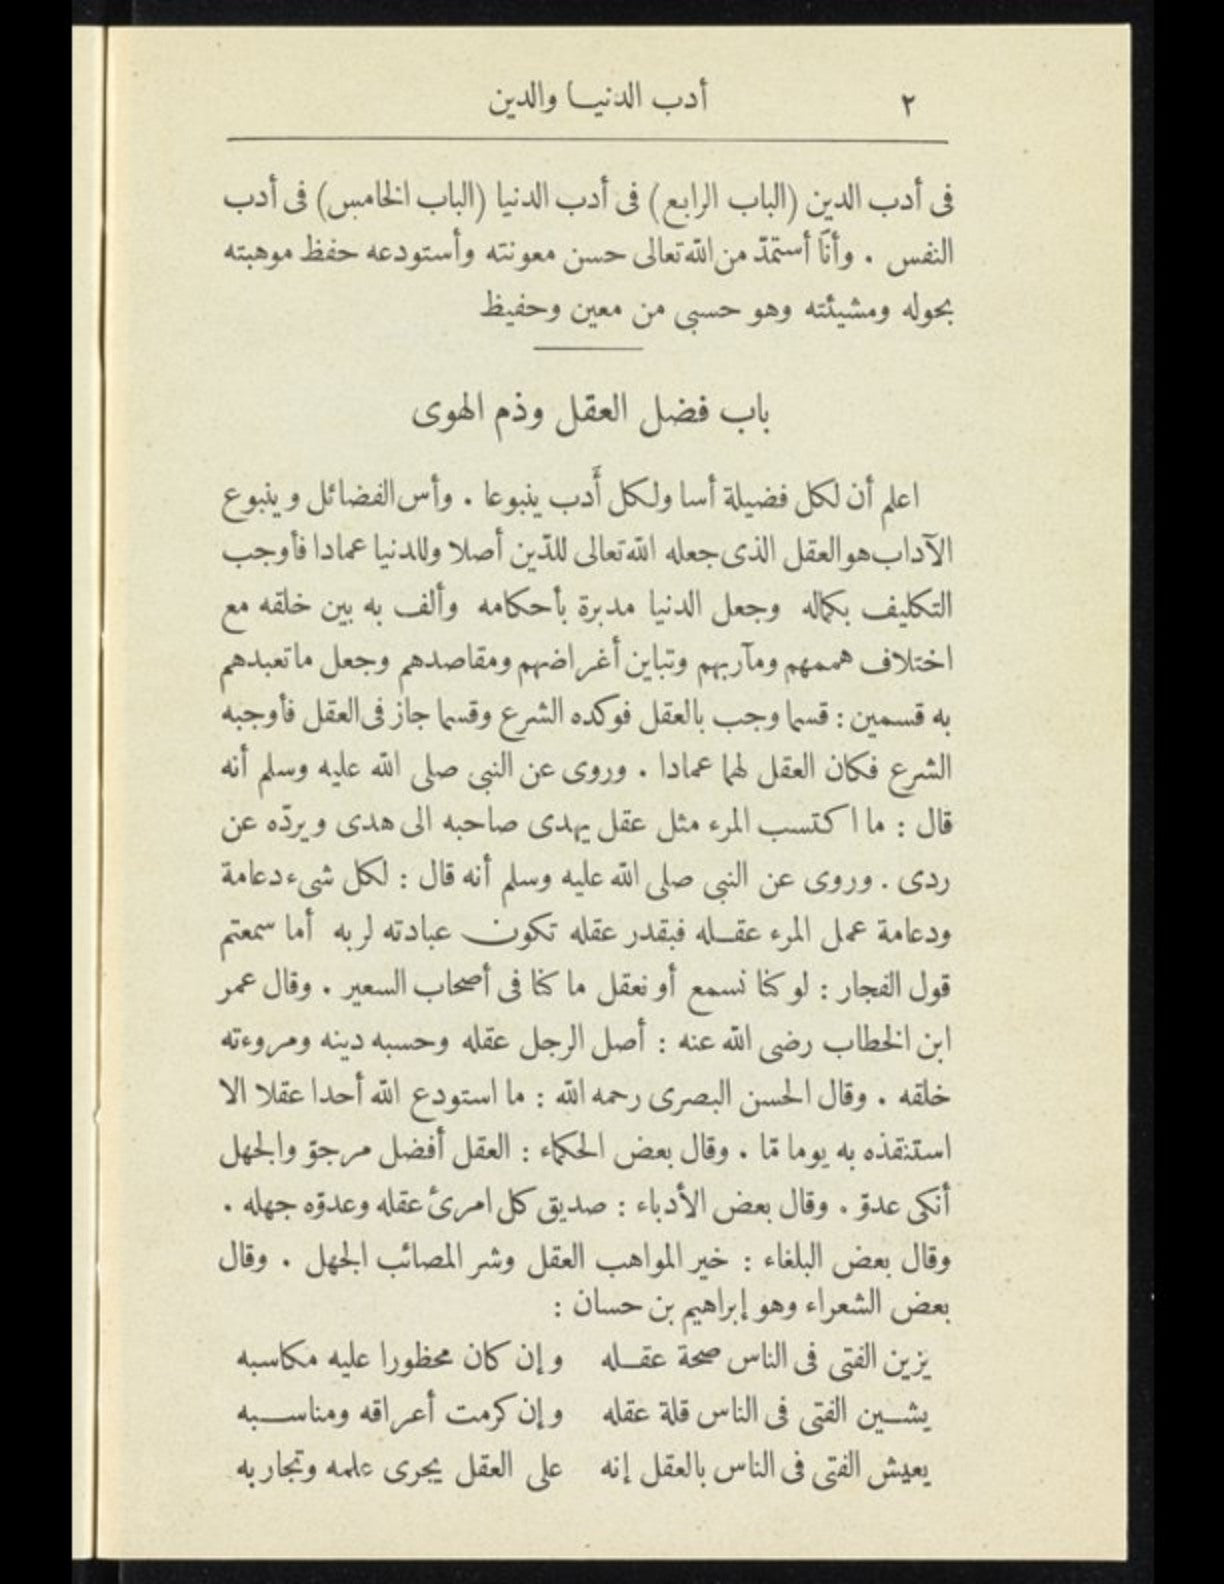 ٢ أدب الدنيا والدين
فى أدب الدين (الباب الرابع) فى أدب الدنيا (الباب الخامس) فى أدب
النفس . وأنا أستمدّ من الله تعالى حسن معونته وأستودعه حفظ موهبته
بحوله ومشيئته وهو حسبى من معين وحفيظ
باب فضل العقل وذم الهوى
اعلم أن لكل فضيلة أسا ولكل أَدب ينبوعا . وأس الفضائل وينبوع
الآداب هو العقل الذى جعله الله تعالى للدّين أصلا وللدنيا عمادا فأوجب
التكليف بكماله وجعل الدنيا مدبرة بأحكامه وألف به بين خلقه مع
اختلاف هممهم ومآربهم وتباين أغراضهم ومقاصدهم وجعل ما تعبدهم
به قسمين : قسما وجب بالعقل فوكده الشرع وقسما جاز فى العقل فأوجبه
الشرع فكان العقل لهما عمادا . وروى عن النبى صلى الله عليه وسلم أنه
قال : ما اكتسب المرء مثل عقل يهدى صاحبه الى هدى ويردّه عن
ردى . وروى عن النبى صلى الله عليه وسلم أنه قال : لكل شىء دعامة
ودعامة عمل المرء عقله فبقدر عقله تكون عبادته لربه أما سمعتم
قول الفجار : لو كنا نسمع أو نعقل ما كنا فى أصحاب السعير . وقال عمر
ابن الخطاب رضى الله عنه : أصل الرجل عقله وحسبه دينه ومروءته
خلقه . وقال الحسن البصرى رحمه الله : ما استودع الله أحدا عقلا الا
استنقذه به يوما مّا . وقال بعض الحكماء : العقل أفضل مرجوّ والجهل
أنكى عدوّ . وقال بعض الأدباء : صديق كل امرئ عقله وعدوّه جهله .
وقال بعض البلغاء : خير المواهب العقل وشر المصائب الجهل . وقال
بعض الشعراء وهو إبراهيم بن حسان :
يزين الفتى فى الناس صحة عقله وإن كان محظورا عليه مكاسبه
يشين الفتى فى الناس قلة عقله وإن كرمت أعراقه ومناسبه
يعيش الفتى فى الناس بالعقل إنه على العقل يجرى علمه وتجاربه